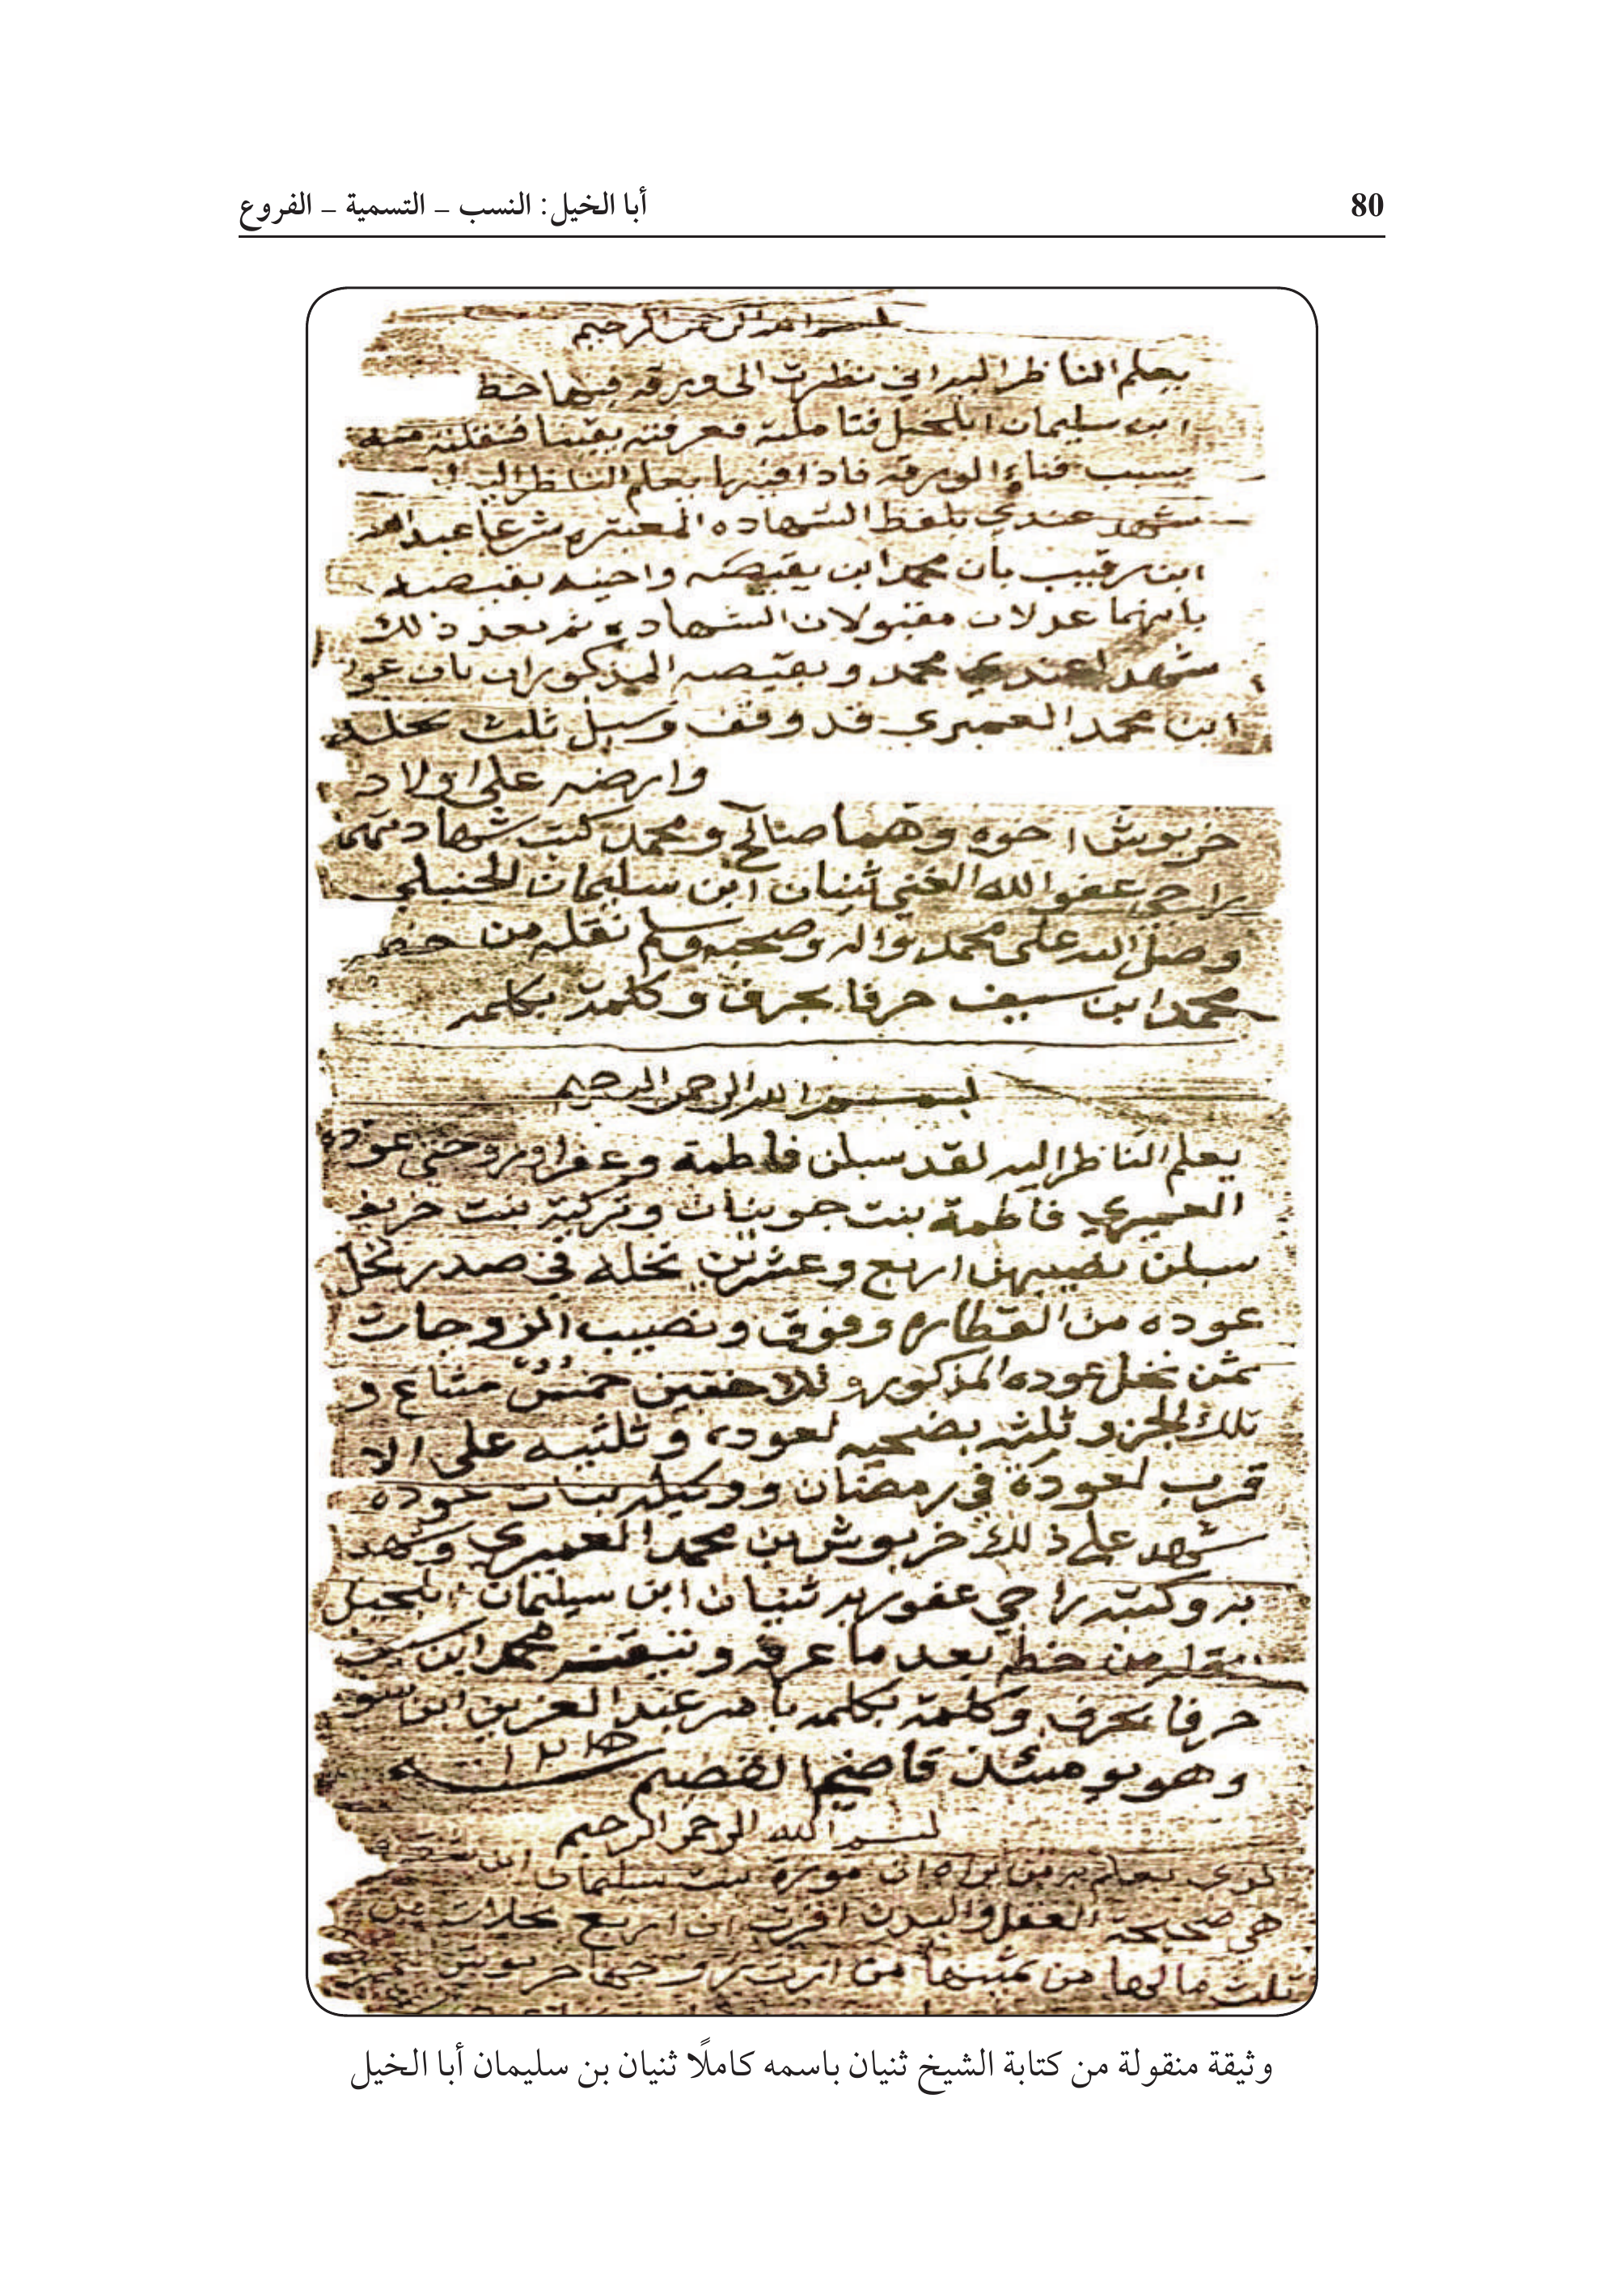 80
أبا الخيل: النسب – التسمية – الفروع
بسم الله الرحمن الرحيم
يعلم الناظر اليه اني نظرت الى ورقه فيها خط
ابن سليمان ابلخيل فتاملته فعرفته يقينا فنقلته منه
بسبب فناء الورقه فاذا فيها يعلم الناظر اليه
شهد عندي بلفظ الشهاده المعتبره شرعا عبدالله
ابن رقيب بأن محمد ابن بقيصه واخيه بقيصه
بانهما عدلان مقبولان الشهاده ثم بعد ذلك
شهد عندي محمد وبقيصه المذكوران بان
ابن محمد العميري قد وقف وسبل ثلث نخله
وارضه على اولاد
خربوش اخوه وهما صالح ومحمد كتب شهادتهما
راجي عفو الله الغني ثنيان ابن سليمان الحنبلي
وصل الله على محمد واله وصحبه وسلم نقله من خط
محمد ابن سيف حرفا بحرف وكلمة بكلمه
بسم الله الرحمن الرحيم
يعلم الناظر اليه لقد سبلن فاطمة وعفرا وزوجتي عوده
العميري فاطمة بنت جوينان وتركية بنت
سبلن نصيبهن اربع وعشرين نخله في صدر نخل
عوده من القطاره وفوق ونصيب الزوجات
ثمن نخل عوده المذكور و خمس مشاع و
تلك الجزو ثلثه بضحيه لعوده وثلثيه على الا
قرب لعودة في رمضان ووكيله بنات عوده
شهد على ذلك خربوش بن محمد العميري وشهد
به وكتبه راجي عفو ربه ثنيان ابن سليمان ابلخيل
نقله من خط بعد ما عرفه وتيقنه محمد ابن
حرفا بحرف وكلمة بكلمه بامر عبد العزيز ابن
وهو يومئذ قاضي القصيم سنه
بسم الله الرحمن الرحيم
يعلم به من يراه ان موزه بنت سليمان ابن
هي صحيحة العقل والبدن اقرت ان اربع نخلات من
ثلث مالها من ثمنها من ارث زوجها خربوش
وثيقة منقولة من كتابة الشيخ ثنيان باسمه كاملًا ثنيان بن سليمان أبا الخيل